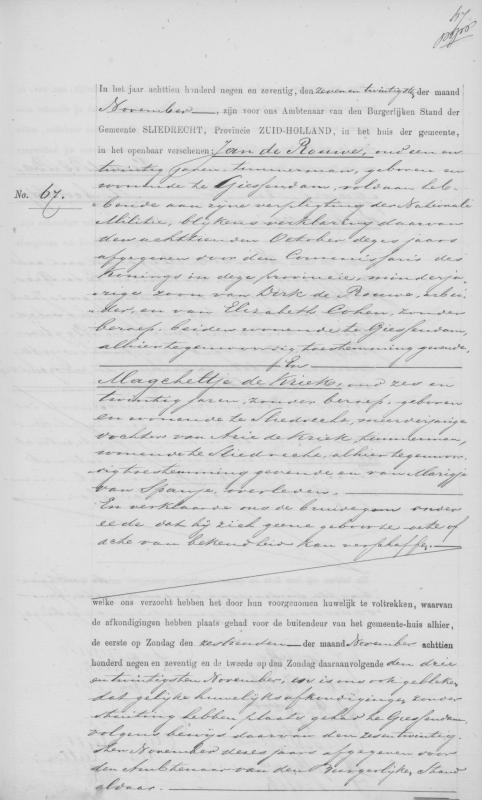 67
In het jaar achttien honderd negen en zeventig, den zevenentwintigste, der maand
November, zijn voor ons Ambtenaar van den Burgerlijken Stand der
Gemeente SLIEDRECHT, Provincie ZUID-HOLLAND, in het huis der gemeente,
in het openbaar verschenen: Jan de Rouwe, oud een en
twintig jaren, timmerman, geboren en
No. 67. wonende te Giessendam, voldaan heb-
bende aan zijne verpligting der Nationale
Militie, blijkens verklaring daarvan
den achttienden October dezes jaars
afgegeven door den Commissaris des
Konings in deze provincie, minderja-
rige zoon van Dirk de Rouwe, arbei-
der, en van Elizabeth Cohen, zonder
beroep, beiden wonende te Giessendam,
alhier tegenwoordig toestemming gevende,
En
Magcheltje de Kriek, oud zes en
twintig jaren, zonder beroep, geboren
en wonende te Sliedrecht, meerderjarige
dochter van Arie de Kriek, timmerman,
wonende te Sliedrecht, alhier tegenwoor-
dig toestemming gevende en van Marijgje
van Spanje, overleden.
En verklaarde ons de bruidegom onder
eede dat hij zich geene geboorte acte of
acte van bekendheid kan verschaffen.
welke ons verzocht hebben het door hun voorgenomen huwelijk te voltrekken, waarvan
de afkondigingen hebben plaats gehad voor de buitendeur van het gemeente-huis alhier,
de eerste op Zondag den zestienden der maand November achttien
honderd negen en zeventig en de tweede op den Zondag daaraanvolgende den drie
en twintigsten November, en is ons ook gebleken
dat gelijke huwelijksafkondigingen zonder
stuiting hebben plaats gehad te Giessendam,
volgens bewijs daarvan den zesentwintig-
sten November dezes jaars afgegeven door
den Ambtenaar van den Burgerlijken Stand
aldaar.